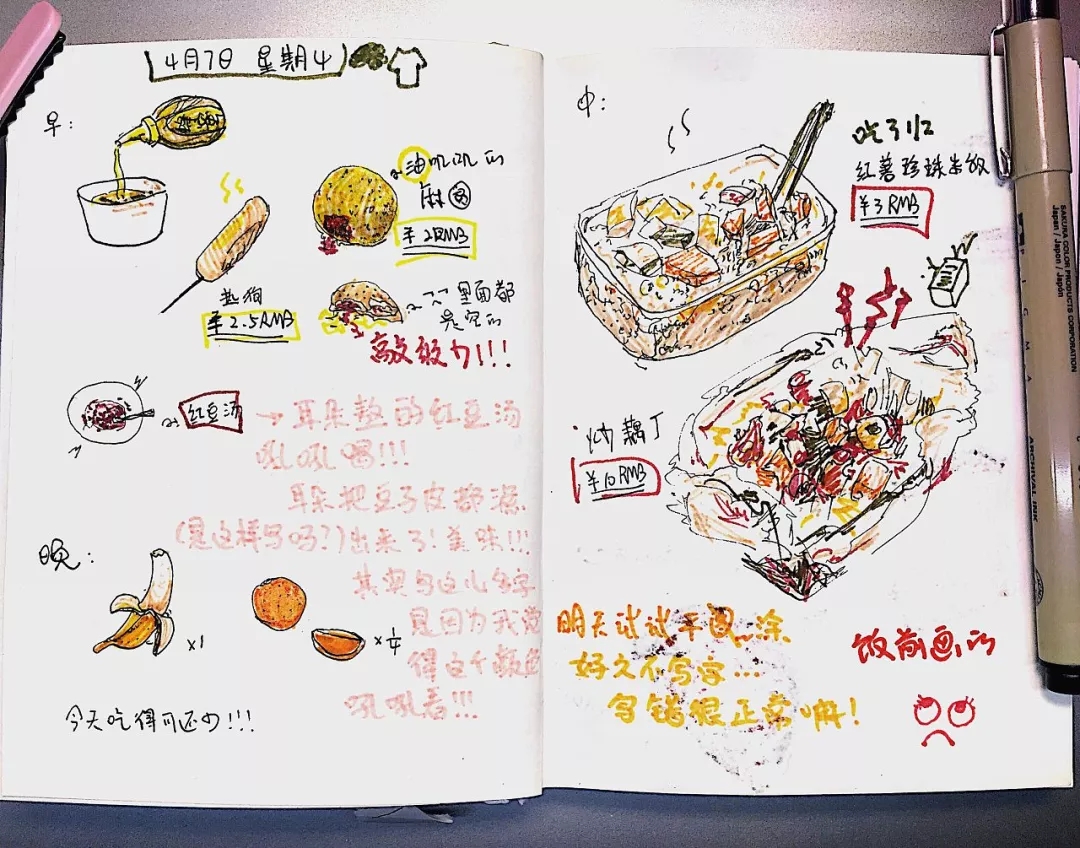 4月7日 星期4
早:
油叽叽的
麻团
¥2RMB
热狗
¥2.5RMB
里面都
是空的
高级力!!!
红豆汤
→耳朵熬的红豆汤
吼吼喝!!!
耳朵把豆子皮都滤
(是这样写吗?)出来了!美味!!!
晚:
其实写这么多字
是因为我觉
得这个颜色
吼吼看!!!
×1
×1/4
今天吃得可还少!!!
中:
吃了1/2
红薯珍珠米饭
¥3RMB
炒藕丁
¥10RMB
明天试试干图涂
好久不写字...
写错很正常嘛!
饭前画的
SAKURA COLOR PRODUCTS CORPORATION
Japan / Japon / Japón
PIGMA
ARCHIVAL INK